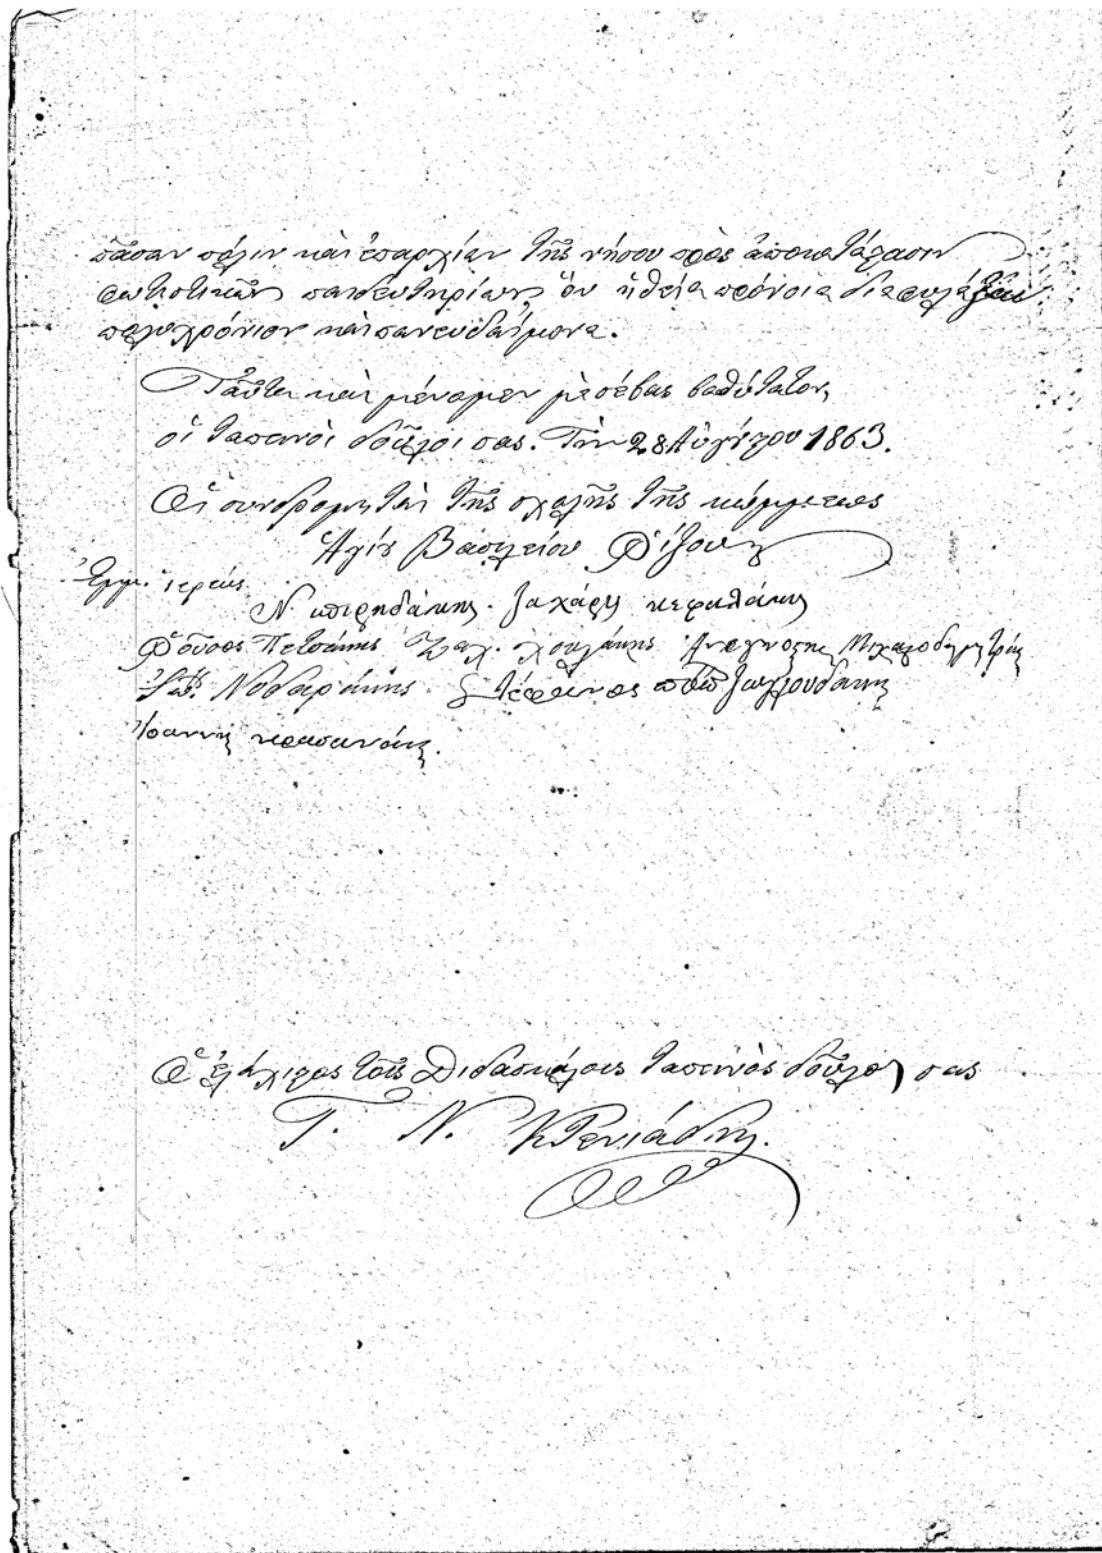 πᾶσαν πόλιν καὶ ἐπαρχίαν τῆς νήσου πρὸς ἀποκατάστασιν
φωτιστικῶν παιδευτηρίων, ὃν ἡ θεία πρόνοια διαφυλάξαι
πολυχρόνιον καὶ πανευδαίμονα.
Ταῦτα καὶ μένομεν μὲ σέβας βαθύτατον,
οἱ ταπεινοὶ δοῦλοι σας. Τὴν 28 Αὐγούστου 1863.
Οἱ συνδρομηταὶ τῆς σχολῆς τῆς κώμης
Ἁγίου Βασιλείου Ῥίζου
ἱερεὺς
Ν. Ζαχάρης κεφαλάκης
Ῥοῦσος Πετσάκης Ζαχ. Ἀναγνώστης Μιχαλοδημητράκης
Στέφανος
Ἰοάννης κρασανάκης.
Ὁ ἐλάχιστος τοῖς Διδασκάλοις ταπεινὸς δοῦλος σας
Γ. Ν. Κτενιάδης.